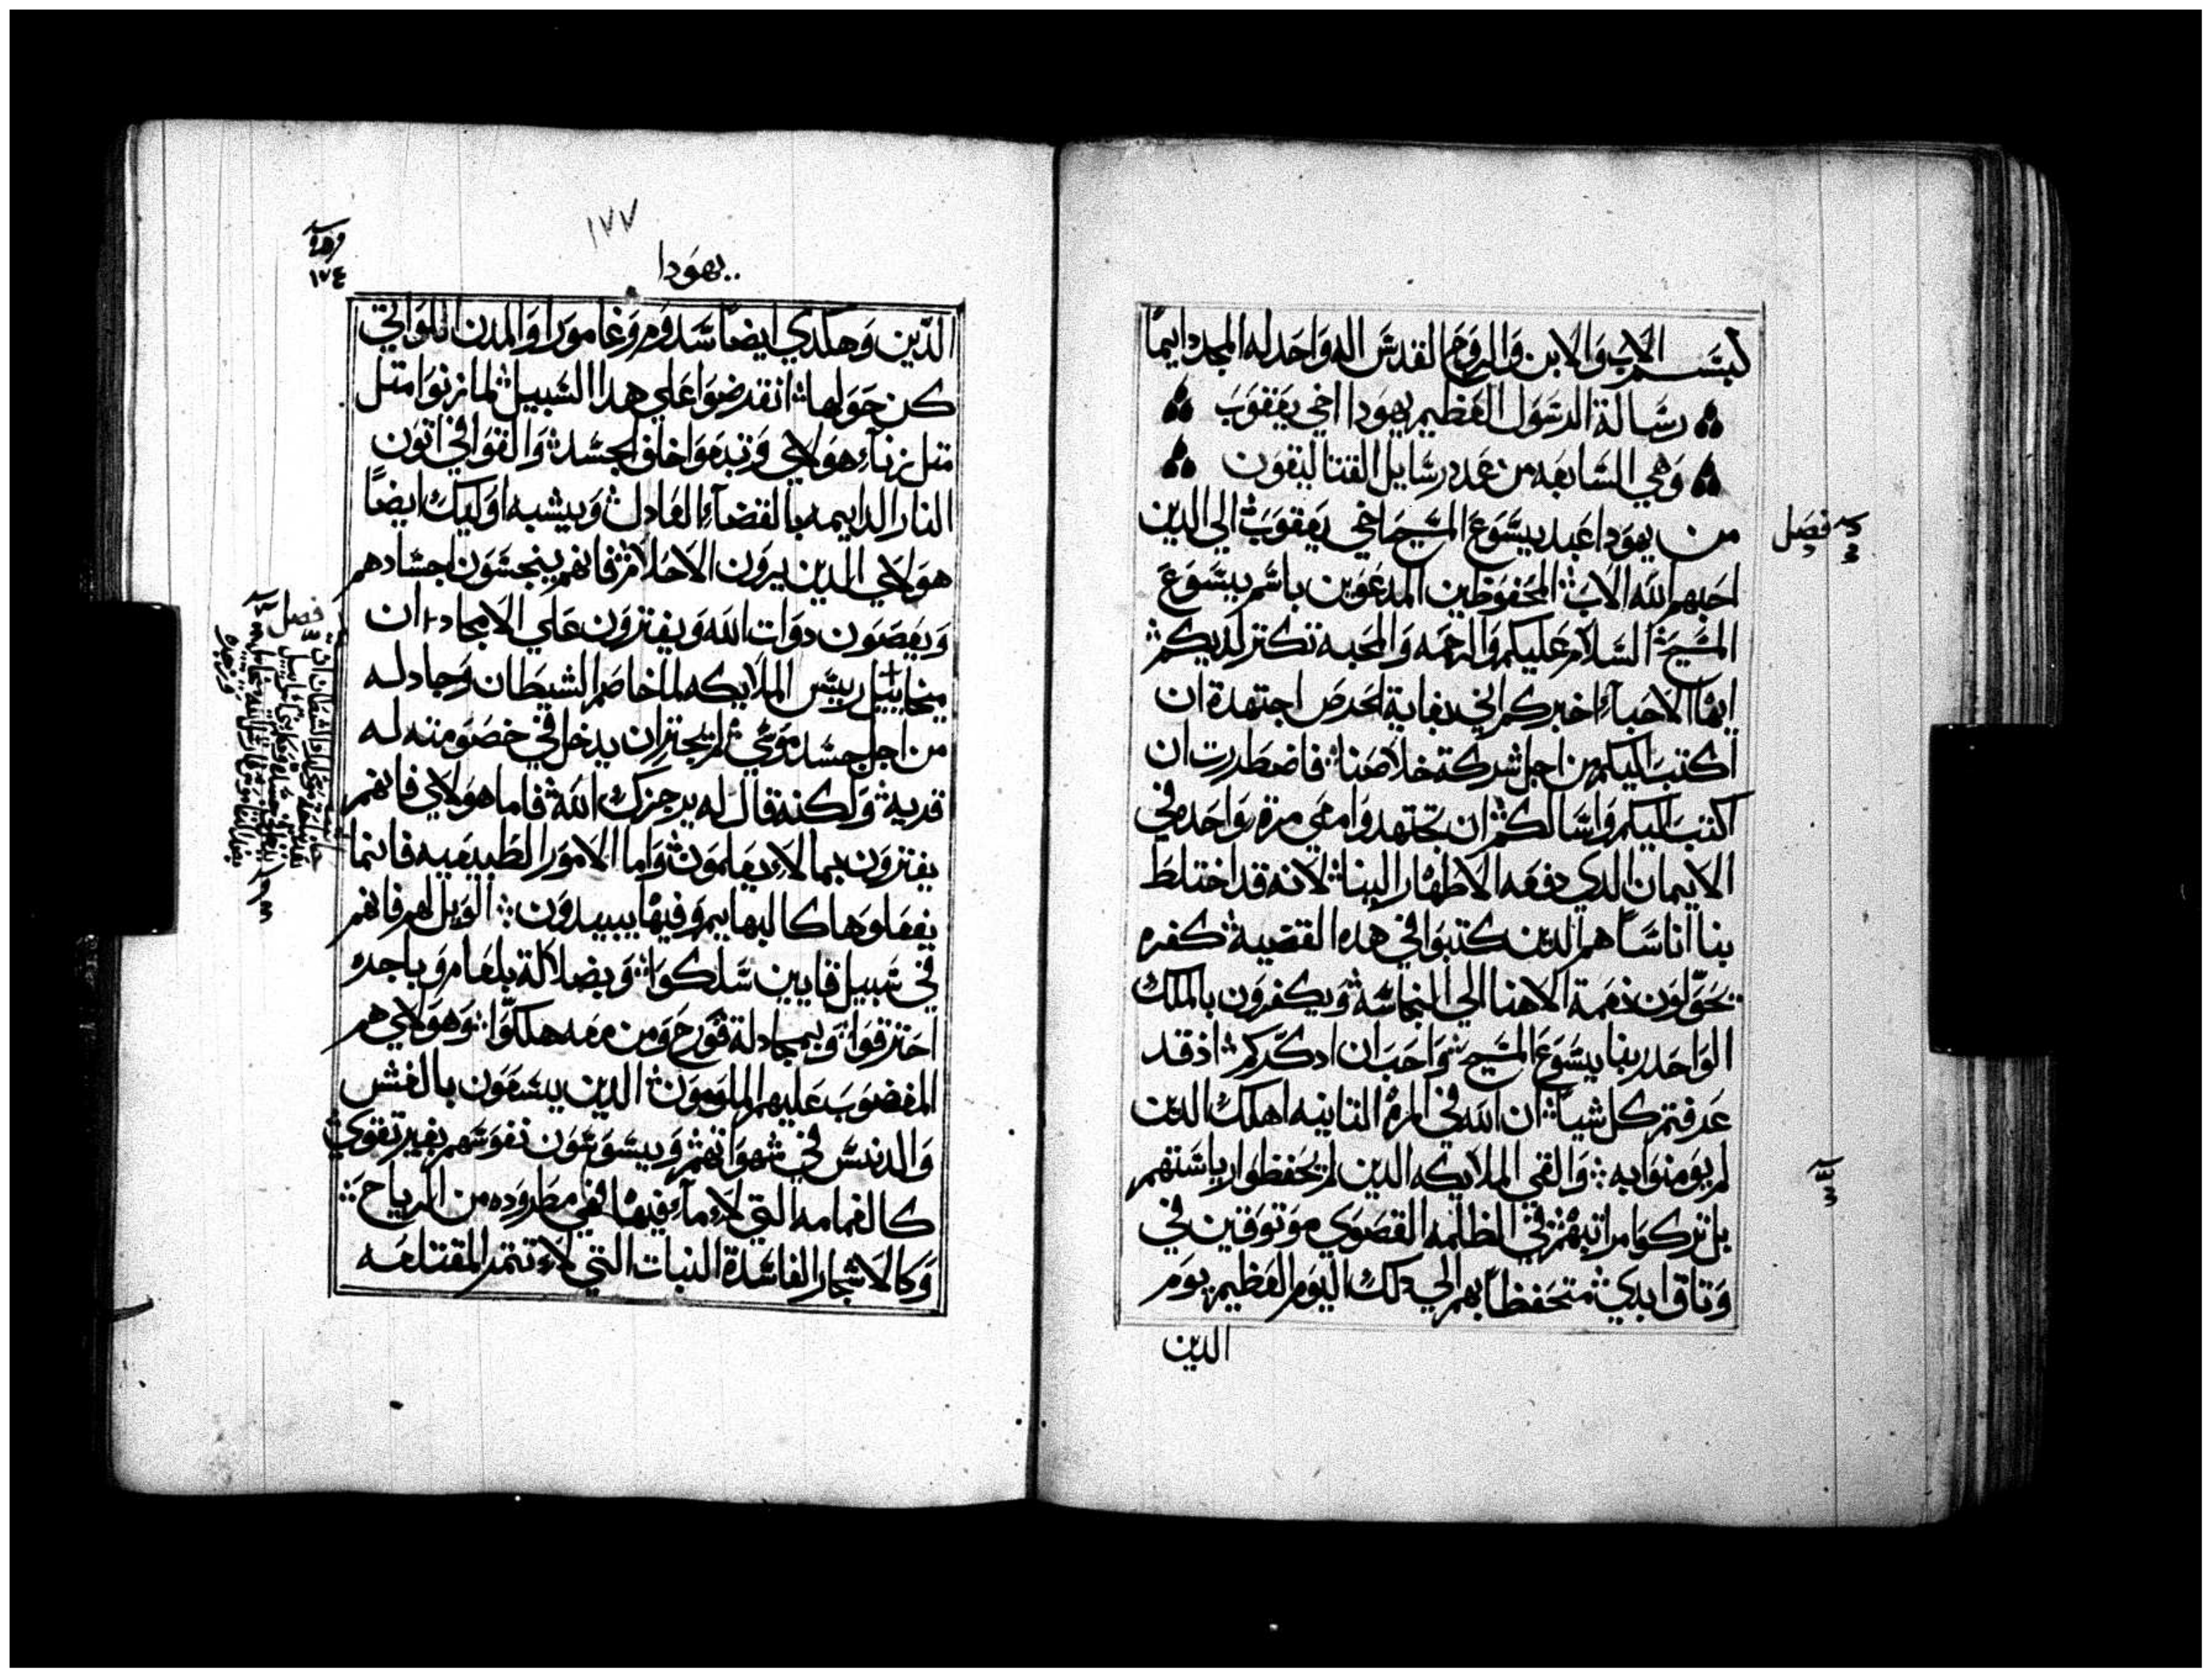 بسم الاب والابن والروح القدس اله واحد له المجد دايماً
رسالة الرسول العظيم يهودا اخي يعقوب
وهي السابعه من عدد رسايل القتاليقون
فصل
من يهودا عبد يسوع المسيح اخي يعقوب الي الدين
احبهم الله الاب المحفوظين المدعوين باسم يسوع
المسيح السلام عليكم والرحمه والمحبه تكتر لديكم
ايها الاحباء اخبركم اني بغاية الحرص اجتهدة ان
اكتب اليكم من اجل شركة خلاصنا فاضطررت ان
اكتب اليكم واسالكم ان تجتهدوا معي مرة واحده في
الايمان الدي دفعه الاطهار الينا لانه قد اختلط
بنا اناساً هم الدين كتبوا في هده القضيه كفره
يحوّلون نعمة الاهنا الي النجاسه ويكفرون بالملك
الواحد ربنا يسوع المسيح واحب ان ادكّركم اذ قد
عرفتم كل شياً ان الله في المرة التانيه اهلك الدين
لم يومنوا به والقي الملايكه الدين لم يحفظوا رياستهم
بل تركوا مراتبهم في الظلمه القصوي موتوقين في
وتاق ابدي متحفظاً بهم الي دلك اليوم العظيم يوم
الدين
١٧٧
يهودا
١٧٤
الدّين وهكدي ايضاً سدوم وغامورا والمدن اللواتي
كن حولها انقرضوا علي هدا السبيل لما زنوا متل
متل زناء هولاي وتبعوا خلف الجسد والقوا في اتون
النار الدايمه بالقضاء العادل ويشبه اوليك ايضاً
هولاي الدين يرون الاحلام فانهم ينجسون اجسادهم
ويعصون دوات الله ويفترون علي الامجاد ان
ميخاييل رييس الملايكه لما خاصم الشيطان وجادله
من اجل جسد موسي لم يجتر ان يدخل في خصومته له
فريه ولكنه قال له يرجزك الله فاما هولاي فانهم
يفترون بما لا يعلمون واما الامور الطبيعيه فانما
يفعلوها كالبهايم وفيها يبيدون الويل لهم فانهم
في سبيل قايين سلكوا وبضلالة بلعام وباجره
احترقوا وبمجادلة قورح ومن معه هلكوا وهولاي هم
المغضوب عليهم الملومون الدين يسعون بالغش
والدنس في شهواتهم ويسوسون نفوسهم بغير تقوي
كالغمامه التي لا ماء فيها لهي مطروده من الرياح
وكالاشجار الفاسدة النبات التي لا تتمر المقتلعه
فصل